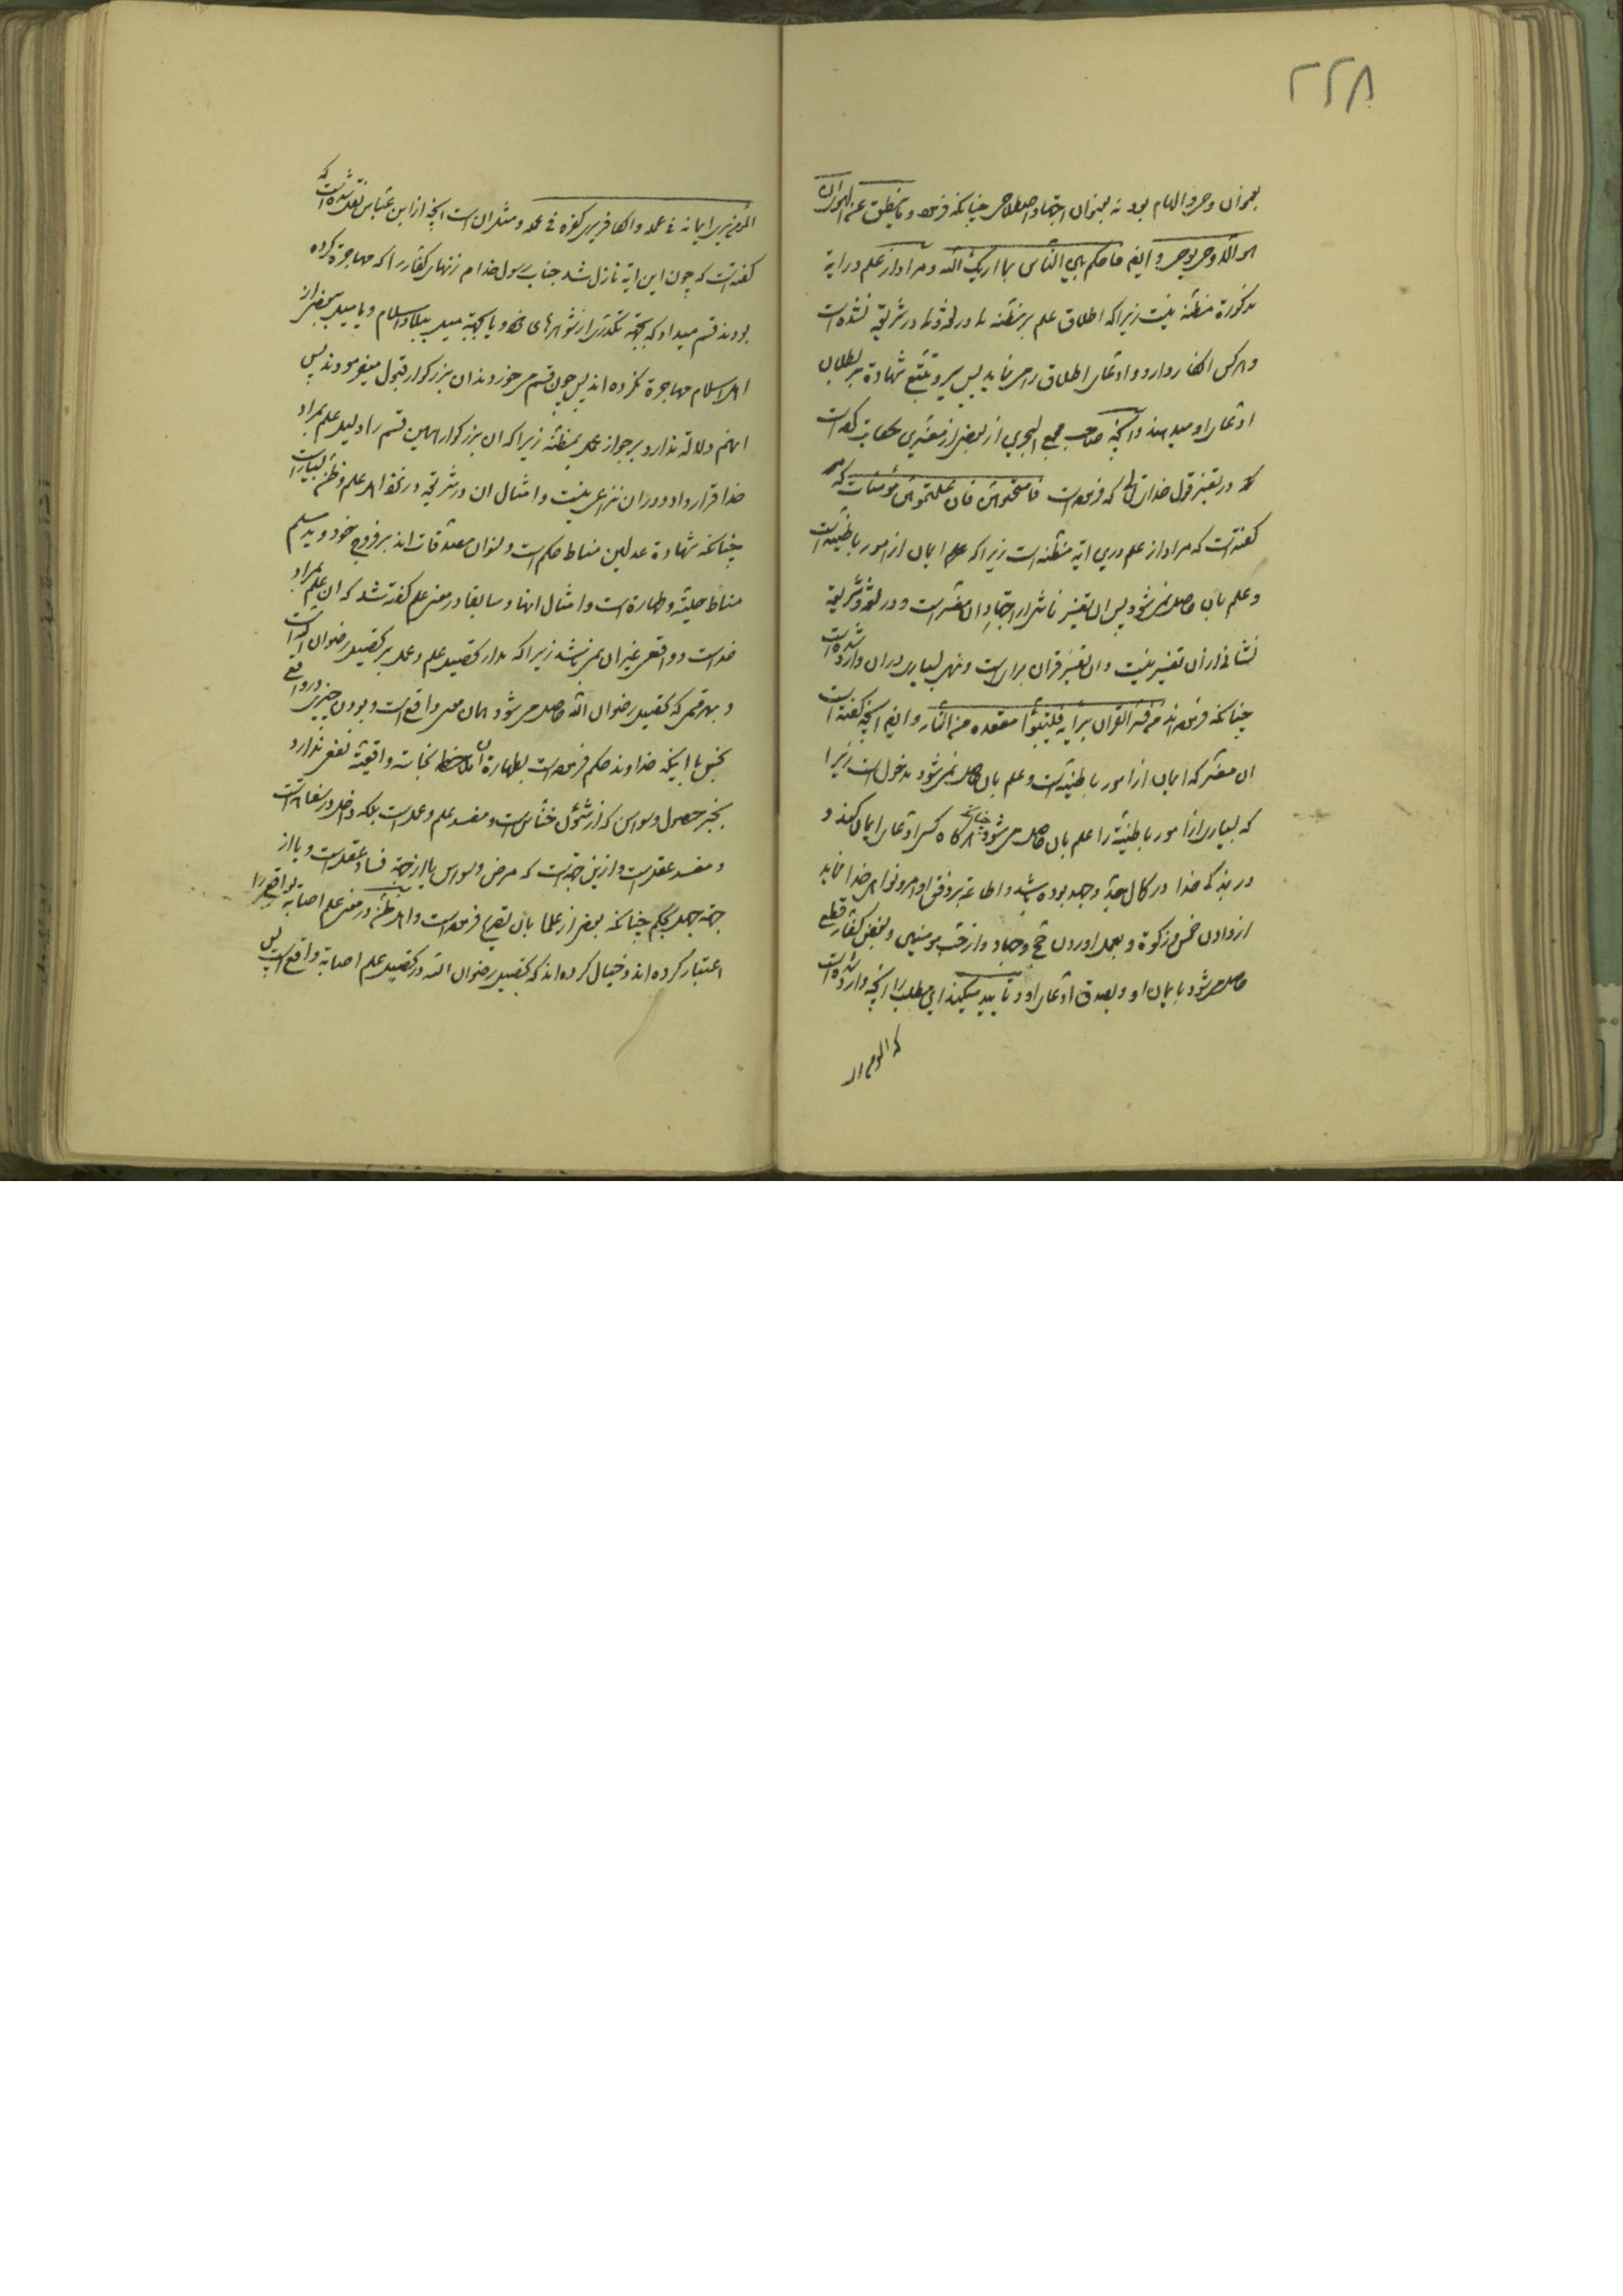 ۲۲۸
بعنوان وحی و الهام بود نه بعنوان اجتهاد اصطلاحی چنانکه فرموده و ما ینطق عن الهوی ان
هو الا وحی یوحی و ایضا فاحکم بین الناس بما اریک الله و مراد از علم در ایة
مذکورة مظنه نیست زیرا که اطلاق علم بر مظنه نه در لغة و نه در شریعة نشده است
و هر کس انکار دارد و ادعای اطلاق را می نماید پس سیر و تتبع شهادة بر بطلان
ادعای او میدهند و آنچه صاحب مجمع البحرین از بعضی از مفسرین حکایت کرده است
که در تفسیر قول خدای تعالی که فرموده است فامتحنوهن فان علمتموهن مؤمنات که
گفته است که مراد از علم درین ایه مظنه است زیرا که علم ایمان از امور باطنیه است
و علم بان حاصل نمی شود پس ان تفسیر ناشی از اجتهاد ان مفسر است و در لغة و شریعة
نشانی از ان تفسیر نیست و ان تفسیر قران برای است و نهی بسیار در ان وارد شده است
چنانکه فرموده اند من فسر القران برایه فلیتبوأ مقعده من النار و ایضا آنچه گفته است
ان مفسر که ایمان از امور باطنیه است و علم بان حاصل نمی شود مدخول است زیرا
که بسیاری از امور باطنیة را علم بان حاصل می شود چنانکه هر گاه کسی ادعای ایمان کند و
در بندگی خدا در کمال جد و جهد بوده باشد و اطاعة بر وفق اوامر و نواهی خدا نماید
از دادن خمس و زکوة و بعمل اوردن حج و جهاد و از حب مومنین و بغض کفار قطع
حاصل می شود بایمان او و بصدق ادعای او و تایید میکند این مطلب را آنچه وارد شده است
که المومن
المؤمن یری ایمانه فی عمله و الکافر یری کفره فی عمله و مثل ان است آنچه از ابن عباس نقل شده است که
گفته است که چون این ایه نازل شد جناب رسول خدا م زنهای کفار را که مهاجرة کرده
بودند قسم میداد که بجهة نشوز از شوهرهای خود و یا بجهة میل ببلاد اسلام و یا میل ببعضی از
اهل اسلام مهاجرة نکرده اند پس چون قسم می خوردند ان بزرگوار قبول میفرمودند پس
اینهم دلالة ندارد بر جواز عمل بمظنه زیرا که ان بزرگوار همین قسم را دلیل علم بمراد
خدا قرار داد و در ان نزاعی نیست و امثال ان در شریعة در نظر اهل علم و ظن بسیار است
چنانکه شهادة عدلین مناط حکم است و نسوان مصدقات اند بر فروج خود و ید مسلم
مناط حلیة و طهارة است و امثال اینها و سابقا در معنی علم گفته شد که ان علم بمراد
خداست و واقعی غیر ان نمی باشد زیرا که مدار تحصیل علم و عمل بر تحصیل رضوان الله است
و بهر قسمی که تحصیل رضوان الله حاصل می شود همان معنی واقع است و بودن چیزی در واقع
نجس با اینکه خداوند حکم فرموده است بطهارة ان ملاحظه نجاسة واقعیة نفعی ندارد
بجز حصول وسواس که از شئون خناس است و مفسد علم و عمل است بلکه داخل در سفاهة است
و مفسد عقل است و ازین جهة است که مرض وسواس یا از جهة فساد عقل است و یا از
جهة جهل بحکم چنانکه بعضی از علما بان تصریح فرموده است و اهل ظن در معنی علم اصابة بواقع را
اعتبار کرده اند و خیال کرده اند که تحصیل رضوان الله در تحصیل علم اصابة واقع است پس